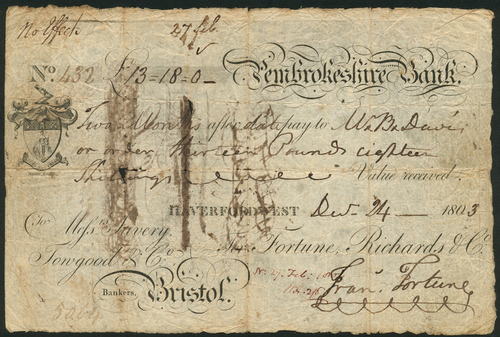 No Effects
27 feb
No. 432 £13=18=0 Pembrokeshire Bank.
Two Months after date pay to Wm Bn Davis
or order thirteen Pounds eighteen
Shillings Value received.
HAVERFORDWEST Decr 24 1803
To Messrs Savery,
Towgood & Co. For Fortune, Richards & Co.
Bankers, Bristol.
Fran. Fortune